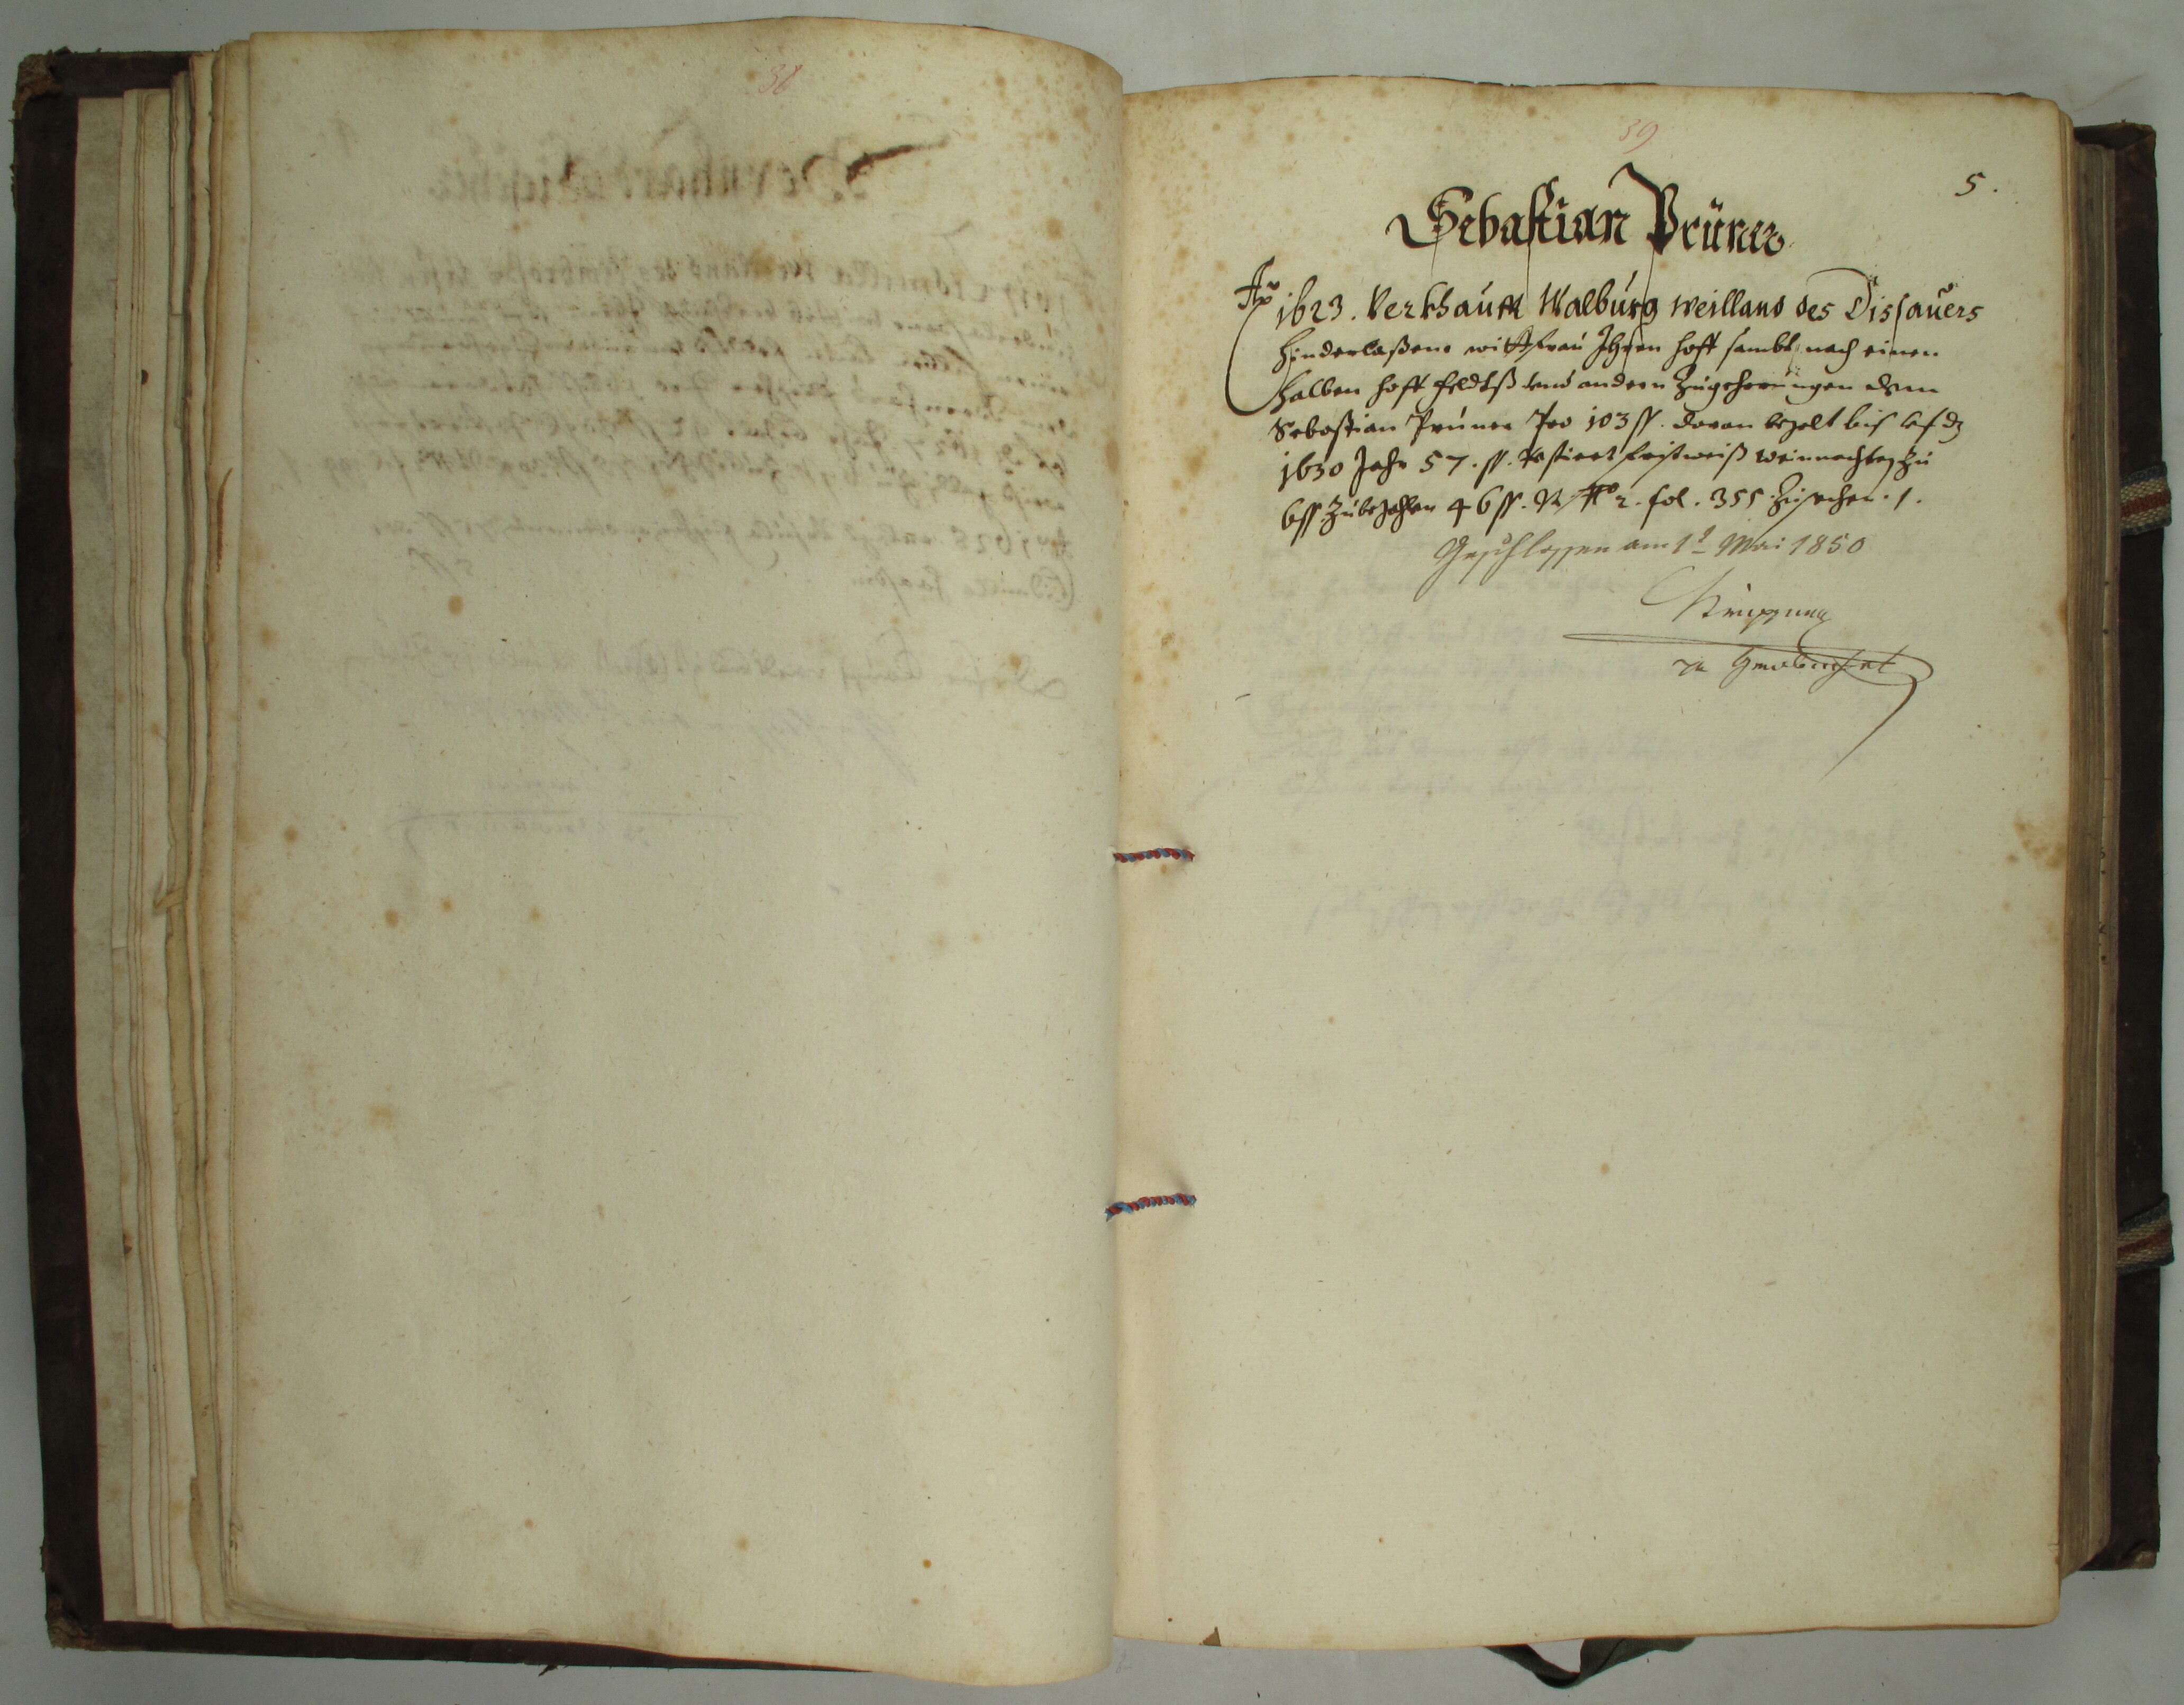 38
39
5.
Sebastian Prüner
Ao 1623. Verkhaufft Walburg weilland des Dissauers
hinderlaßene wittfrau Ihren hoff sambt nach einen
halben hoff feldtß und andern Zugehorungen dem
Sebastian Prüner Pro 103 ff. davon bezalt bis auf dz
1630 Jahr 57. ff. Restiert fristweiß Weinnachten zu
6 ff. Zubezahlen 46 ff. fol. 355. Zusehen. 1.
Geschlossen am 1 Mai 1850